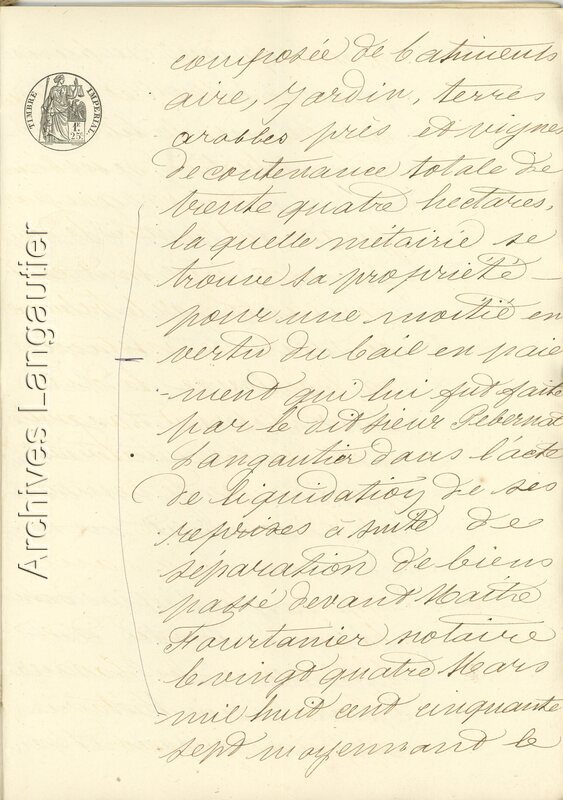 TIMBRE IMPERIAL
1F.
25c
Archives Langautier
composée de batiments
aire, Jardin, terres
arables près et vignes
de contenance totale de
trente quatre hectares,
la quelle métairie se
trouve sa propriété
pour une moitié en
vertu du bail en paie
-ment qui lui fut faite
par le dit sieur Pebernat
Langautier dans l'acte
de liquidation de ses
reprises à suite de
séparation de biens
passé devant Maitre
Fourtanier notaire
le vingt quatre Mars
mil huit cent cinquante
sept moyennant le